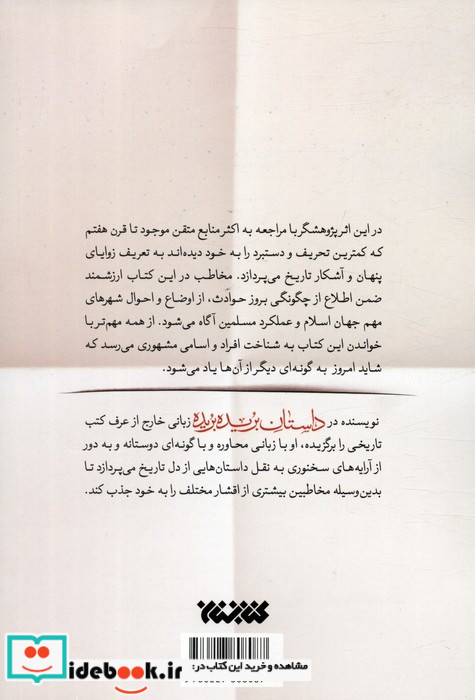 در این اثر پژوهشگر با مراجعه به اکثر منابع متقن موجود تا قرن هفتم
که کمترین تحریف و دستبرد را به خود دیده‌اند به تعریف زوایای
پنهان و آشکار تاریخ می‌پردازد. مخاطب در این کتاب ارزشمند
ضمن اطلاع از چگونگی بروز حوادث، از اوضاع و احوال شهرهای
مهم جهان اسلام و عملکرد مسلمین آگاه می‌شود. از همه مهم‌تر با
خواندن این کتاب به شناخت افراد و اسامی مشهوری می‌رسد که
شاید امروز به گونه‌ای دیگر از آن‌ها یاد می‌شود.
نویسنده در داستان بریده بریده زبانی خارج از عرف کتب
تاریخی را برگزیده، او با زبانی محاوره و با گونه‌ای دوستانه و به دور
از آرایه‌های سخنوری به نقل داستان‌هایی از دل تاریخ می‌پردازد تا
بدین‌وسیله مخاطبین بیشتری از اقشار مختلف را به خود جذب کند.
مشاهده و خرید این کتاب در:
idebook.ir